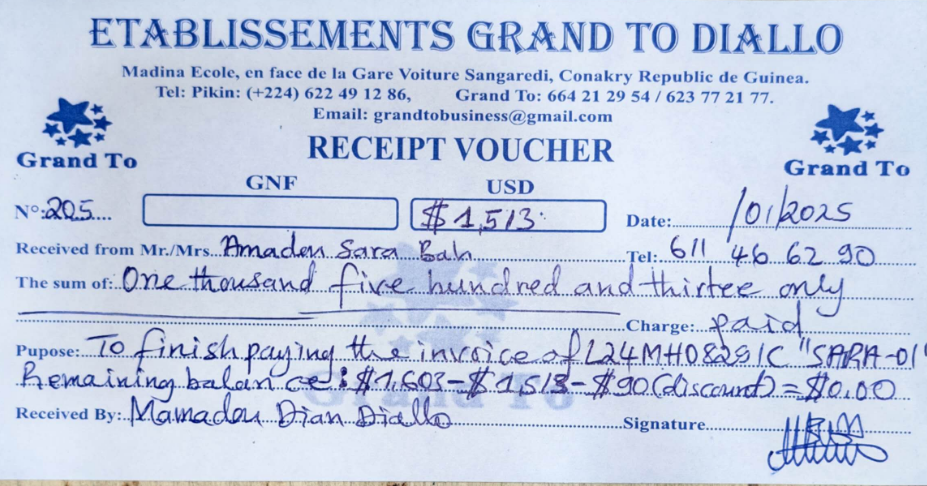 ETABLISSEMENTS GRAND TO DIALLO
Madina Ecole, en face de la Gare Voiture Sangaredi, Conakry Republic de Guinea.
Tel: Pikin: (+224) 622 49 12 86, Grand To: 664 21 29 54 / 623 77 21 77.
Email: grandtobusiness@gmail.com
Grand To
RECEIPT VOUCHER
Grand To
GNF USD
N°: 205 $1,513 Date: /01/2025
Received from Mr./Mrs. Amadou Sara Bah Tel: 611 46 62 90
The sum of: One thousand five hundred and thirtee only
Charge: paid
Pupose: To finish paying the invoice of L24MH0829IC "SARA-01"
Remaining balance: $1,603-$1,513-$90(discount)=$0.00
Grand To
Received By: Mamadou Dian Diallo Signature